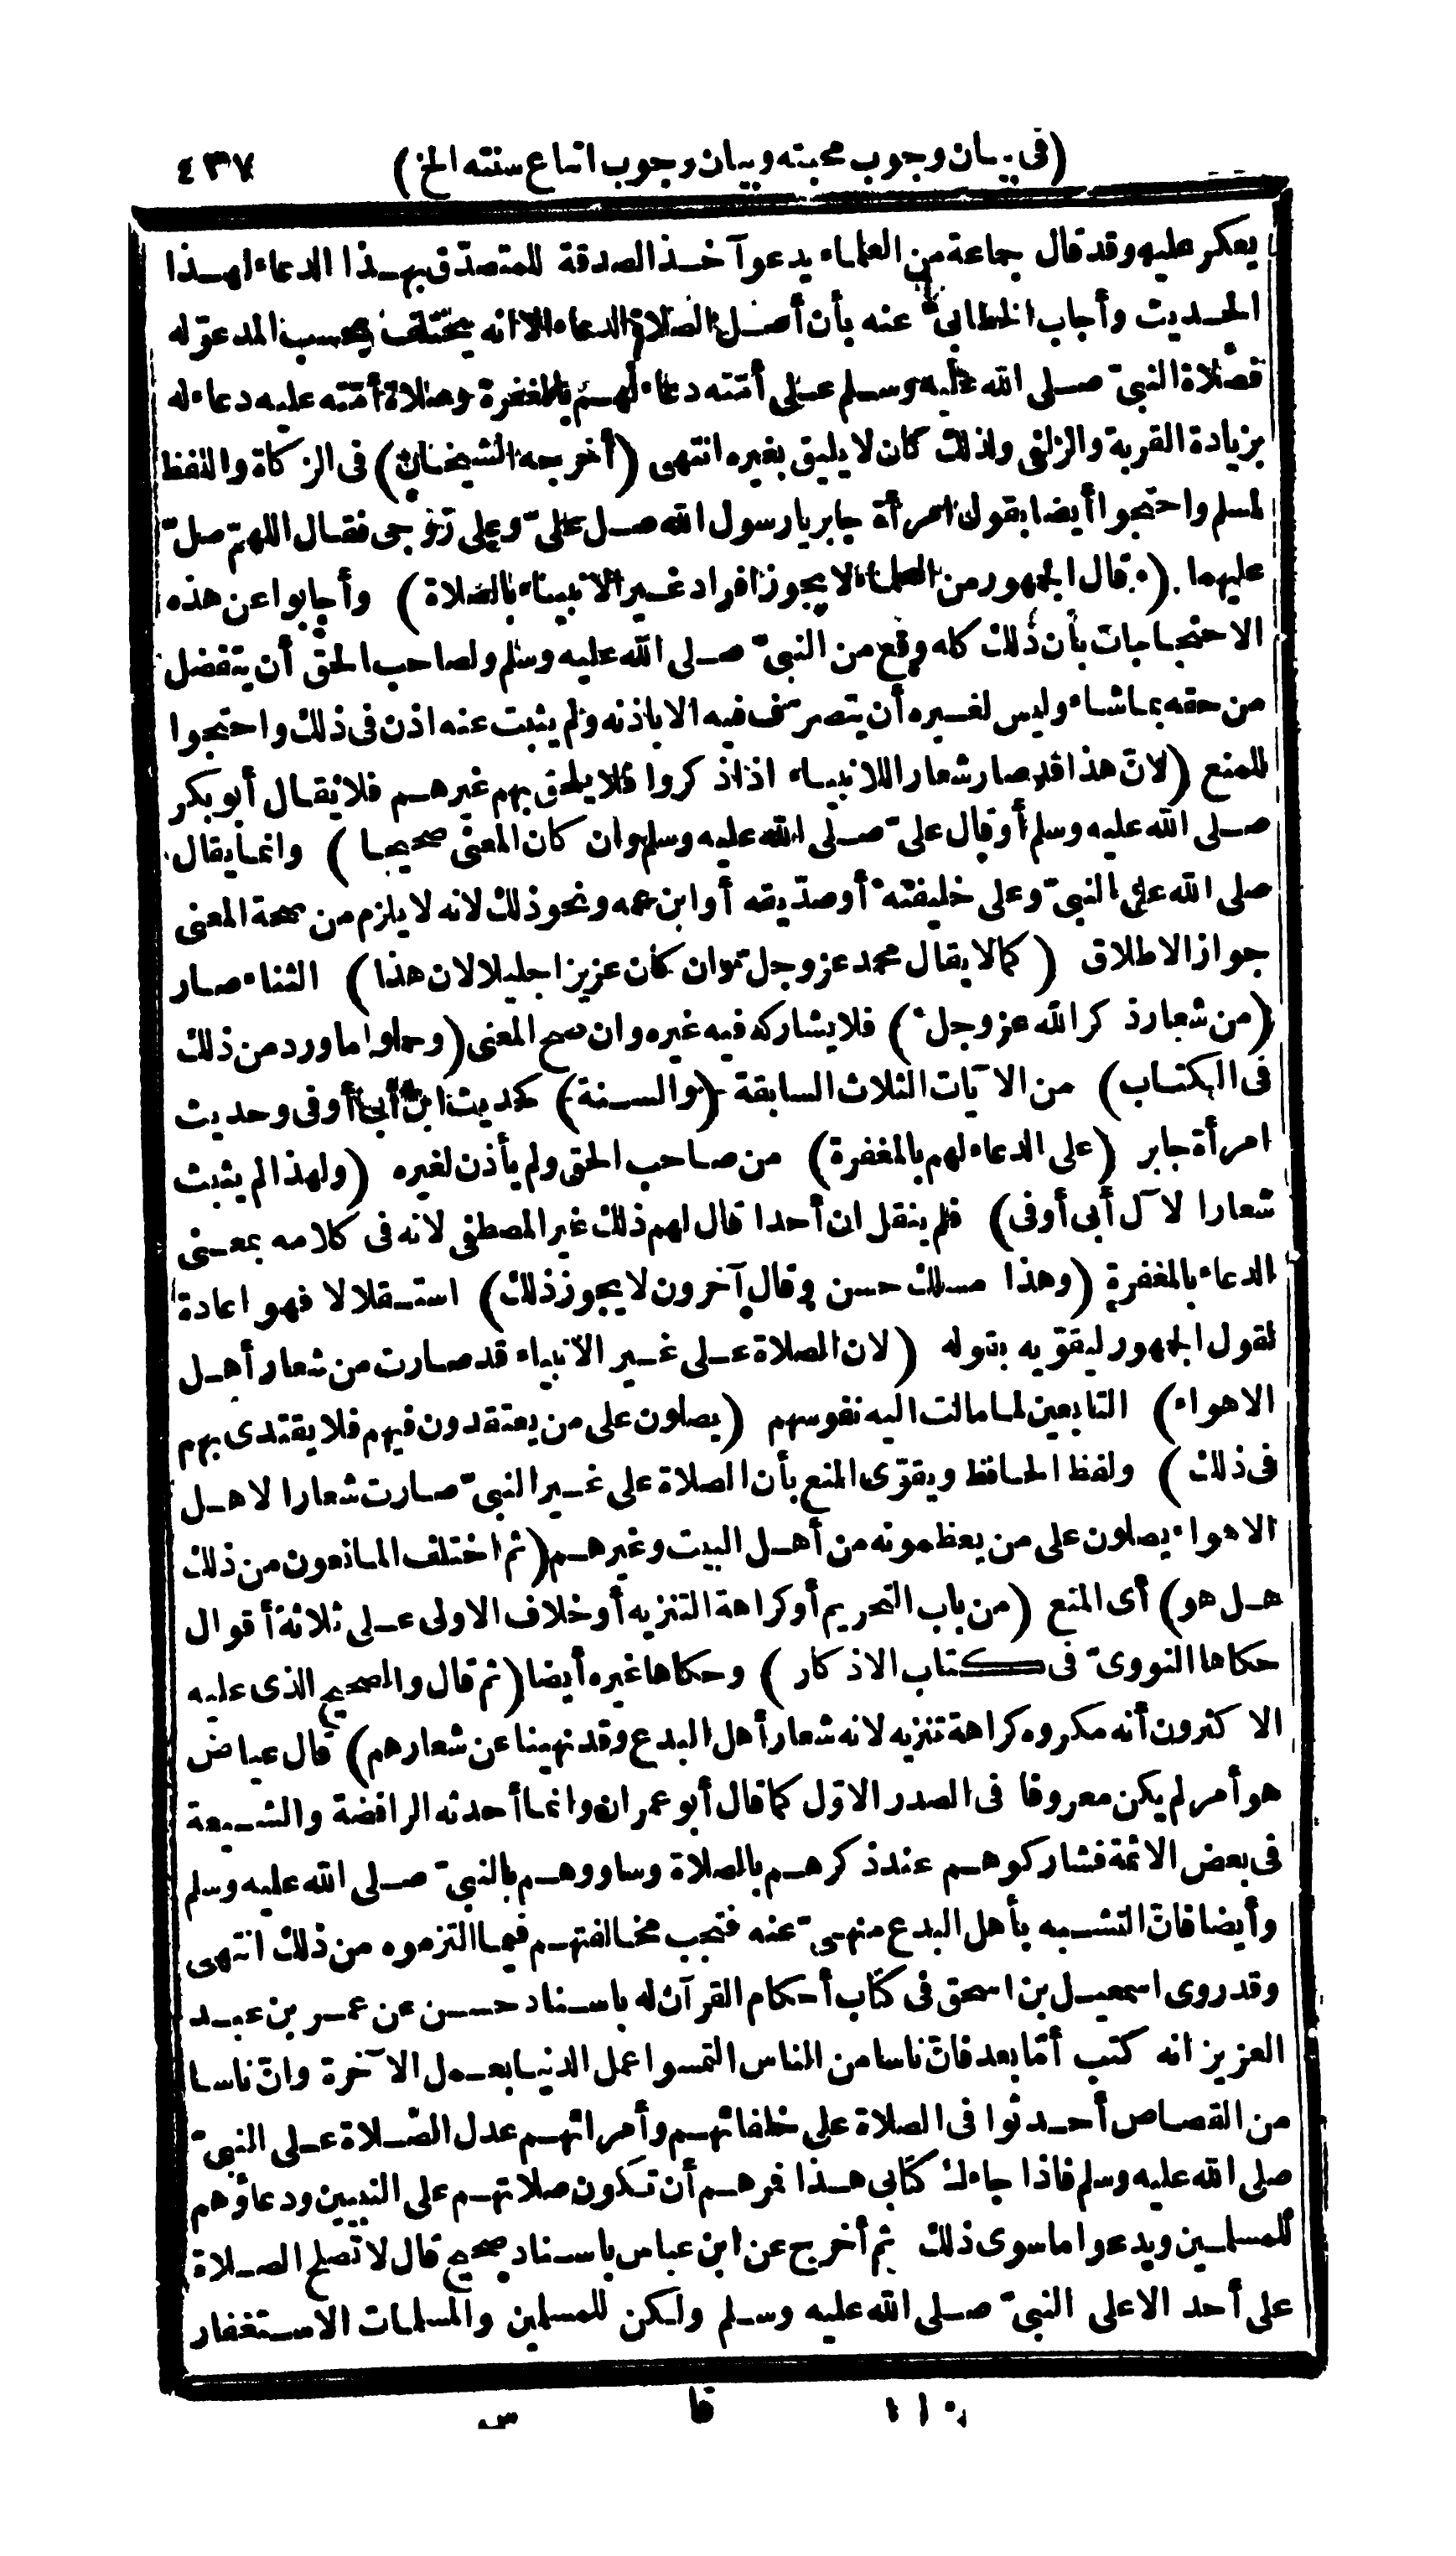 (فى بيان وجوب محبته وبيان وجوب اتباع سنته الخ) ٤٣٧
يعكر عليه وقد قال جماعة من العلماء يدعو آخذ الصدقة للمتصدّق بهذا الدعاء لهذا
الحديث وأجاب الخطابىّ عنه بأن أصل الصلاة الدعاء الا انه يختلف بحسب المدعوّله
فصلاة النبىّ صلى الله عليه وسلم على أمّته دعاء لهم بالمغفرة وصلاة أمّته عليه دعاء له
بزيادة القربة والزلفى ولذلك كان لا يليق بغيره انتهى (أخرجه الشيخان) فى الزكاة واللفظ
لمسلم واحتجوا أيضا بقول امرأة جابر يا رسول الله صل علىّ وعلى زوجى فقال اللهمّ صلّ
عليهما (وقال الجمهور من العلماء لا يجوز افراد غير الانبياء بالصلاة) وأجابوا عن هذه
الاحتجاجات بأن ذلك كله وقع من النبىّ صلى الله عليه وسلم ولصاحب الحق أن يتفضل
من حقه بما شاء وليس لغيره أن يتصرّف فيه الا باذنه ولم يثبت عنه اذن فى ذلك واحتجوا
للمنع (لانّ هذا قد صار شعارا للانبياء اذا ذكروا فلا يلحق بهم غيرهم فلا يقال أبو بكر
صلى الله عليه وسلم أو قال علىّ صلى الله عليه وسلم وان كان المعنى صحيحا) وانما يقال
صلى الله على النبىّ وعلى خليفته أو صدّيقه أو ابن عمه ونحو ذلك لانه لا يلزم من صحة المعنى
جواز الاطلاق (كما لا يقال محمد عز وجل وان كان عزيزا جليلا لان هذا) الثناء صار
(من شعار ذكر الله عز وجل) فلا يشاركه فيه غيره وان صح المعنى (وحملوا ما ورد من ذلك
فى الكتاب) من الآيات الثلاث السابقة (والسنة) كحديث ابن أبى أوفى وحديث
امرأة جابر (على الدعاء لهم بالمغفرة) من صاحب الحق ولم يأذن لغيره (ولهذا لم يثبت
شعارا لآل أبى أوفى) فلم ينقل ان أحدا قال لهم ذلك غير المصطفى لانه فى كلامه بمعنى
الدعاء بالمغفرة (وهذا مسلك حسن وقال آخرون لا يجوز ذلك) استقلالا فهو اعادة
لقول الجمهور ليقوّيه بقوله (لان الصلاة على غير الانبياء قد صارت من شعار أهل
الاهواء) التابعين لما مالت اليه نفوسهم (يصلون على من يعتقدون فيهم فلا يقتدى بهم
فى ذلك) ولفظ الحافظ ويقوّى المنع بأن الصلاة على غير النبىّ صارت شعارا لاهل
الاهواء يصلون على من يعظمونه من أهل البيت وغيرهم (ثم اختلف المانعون من ذلك
هل هو) أى المنع (من باب التحريم أو كراهة التنزيه أو خلاف الاولى على ثلاثة أقوال
حكاها النووىّ فى كتاب الاذكار) وحكاها غيره أيضا (ثم قال والصحيح الذى عليه
الاكثرون أنه مكروه كراهة تنزيه لانه شعار أهل البدع وقد نهينا عن شعارهم) قال عياض
هو أمر لم يكن معروفا فى الصدر الاوّل كما قال أبو عمران وانما أحدثه الرافضة والشيعة
فى بعض الائمة فشاركوهم عند ذكرهم بالصلاة وساووهم بالنبىّ صلى الله عليه وسلم
وأيضا فانّ التشبه بأهل البدع منهىّ عنه فتجب مخالفتهم فيما التزموه من ذلك انتهى
وقد روى اسمعيل بن اسحق فى كتاب أحكام القرآن له باسناد حسن عن عمر بن عبد
العزيز انه كتب أمّا بعد فانّ ناسا من الناس التمسوا عمل الدنيا بعمل الآخرة وانّ ناسا
من القصاص أحدثوا فى الصلاة على خلفائهم وأمرائهم عدل الصلاة على النبىّ
صلى الله عليه وسلم فاذا جاءك كتابى هذا فمرهم أن تكون صلاتهم على النبيين ودعاؤهم
للمسلمين ويدعوا ما سوى ذلك ثم أخرج عن ابن عباس باسناد صحيح قال لا تصلح الصلاة
على أحد الا على النبىّ صلى الله عليه وسلم ولكن للمسلمين والمسلمات الاستغفار
١١٠ قا س